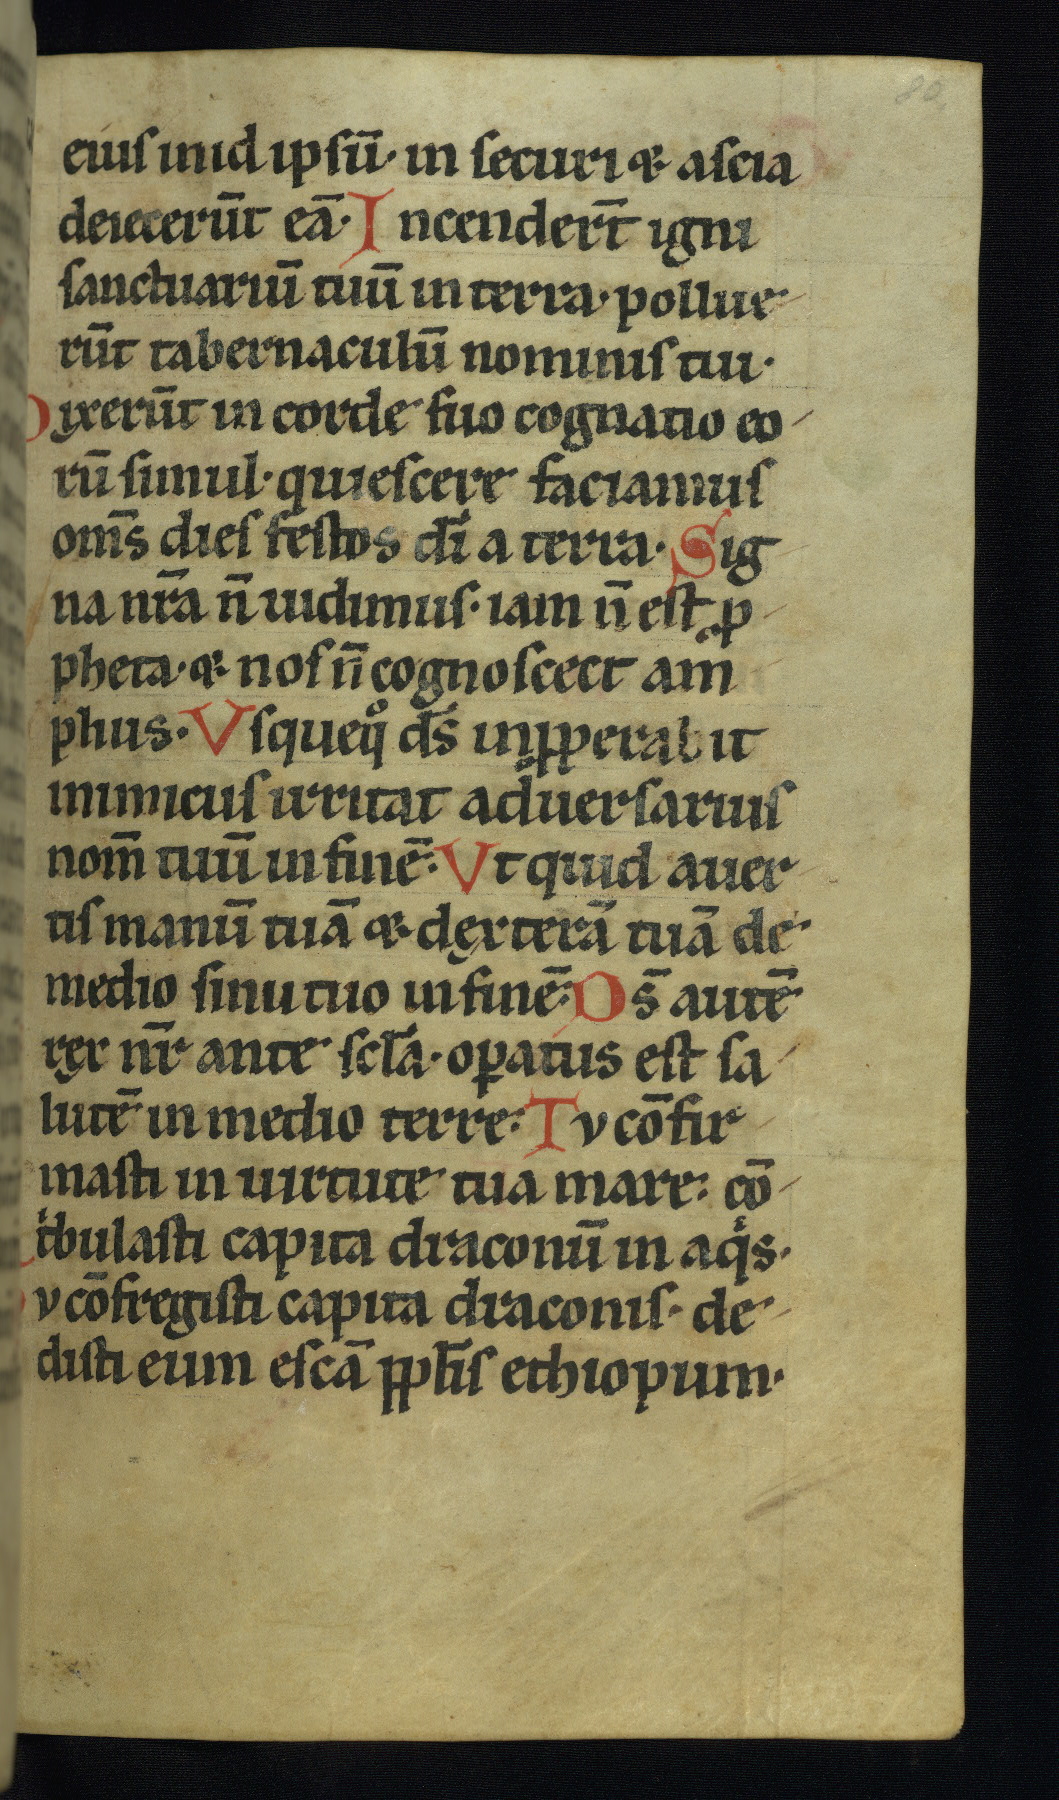 80
eius inid ipsū· in securi ⁊ ascia
deiecerūt eā· Incendert̄ igni
sanctuariū tuū in terra· pollue
rūt tabernaculū nominis tui·
Dixerūt in corde suo cognatio eo
rū simul· quiescere faciamus
om̄s dies festos dī a terra· Sig
na nr̄a n̄ uidimus· iam n̄ est ꝓ
pheta· ⁊ nos n̄ cognoscect am̄
phus· Vsqueqͦ ds̄ inꝓperabit
inimicus irritat aduersarius
nom̄ tuū in finē· Vt quid auer
tis manū tuā ⁊ dexterā tuā de
medio sinu tuo in finē· Ds̄ autē
rex nr̄ ante scl̄a· oꝑatus est sa
lutē in medio terre· Tv cōfir
masti in uirtute tua mare· cō
tͥbulasti capita draconū in aqͥs·
v cōfregisti capita draconis· de
disti eum escā ꝓpl̄is ethiopum·